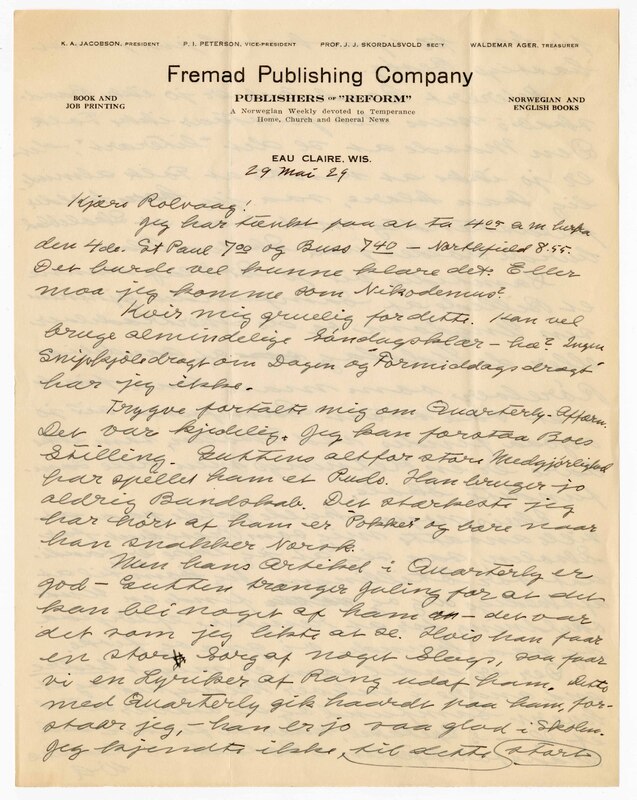 K. A. JACOBSON, PRESIDENT P. I. PETERSON, VICE-PRESIDENT PROF. J. J. SKORDALSVOLD SEC'Y WALDEMAR AGER, TREASURER
Fremad Publishing Company
BOOK AND
JOB PRINTING
PUBLISHERS OF "REFORM"
A Norwegian Weekly devoted to Temperance
Home, Church and General News
NORWEGIAN AND
ENGLISH BOOKS
EAU CLAIRE, WIS.
29 Mai 29
Kjære Rolvaag!
Jeg har tænkt paa at ta 4 05 a m herfra
den 4de. St Paul 7 00 og Buss 7 40 – Northfield 8.55.
Det burde vel kunne klare det. Eller
moa jeg komme som Nikodemus?
Kvir mig gruelig for dette. Kan vel
bruge almindelige Søndagsklær – hæ? Ingen
Snipkjoledragt om Dagen og "Formiddagsdragt"
har jeg ikke.
Trygve fortalte mig om Quarterly-Affæren.
Det var kjedelig. Jeg kan forstaa Boes
Stilling. Guttens altfor store Medgjørlighed
har spillet ham et Puds. Han bruger jo
aldrig Bandskab. Det stærkeste jeg
har hørt af ham er "Pokker" og bare naar
han snakker Norsk.
Men hans Artikel i Quarterly er
god – Gutten trænger Juling for at det
kan bli noget af ham – det var
det som jeg likte at se. Hvis han faar
en stor Sorg af noget Slags, saa faar
vi en Lyriker af Rang udaf ham. Dette
med Quarterly gik haardt paa ham, for-
staar jeg, – han er jo saa glad i Skolen.
Jeg kjendte ikke til dette start